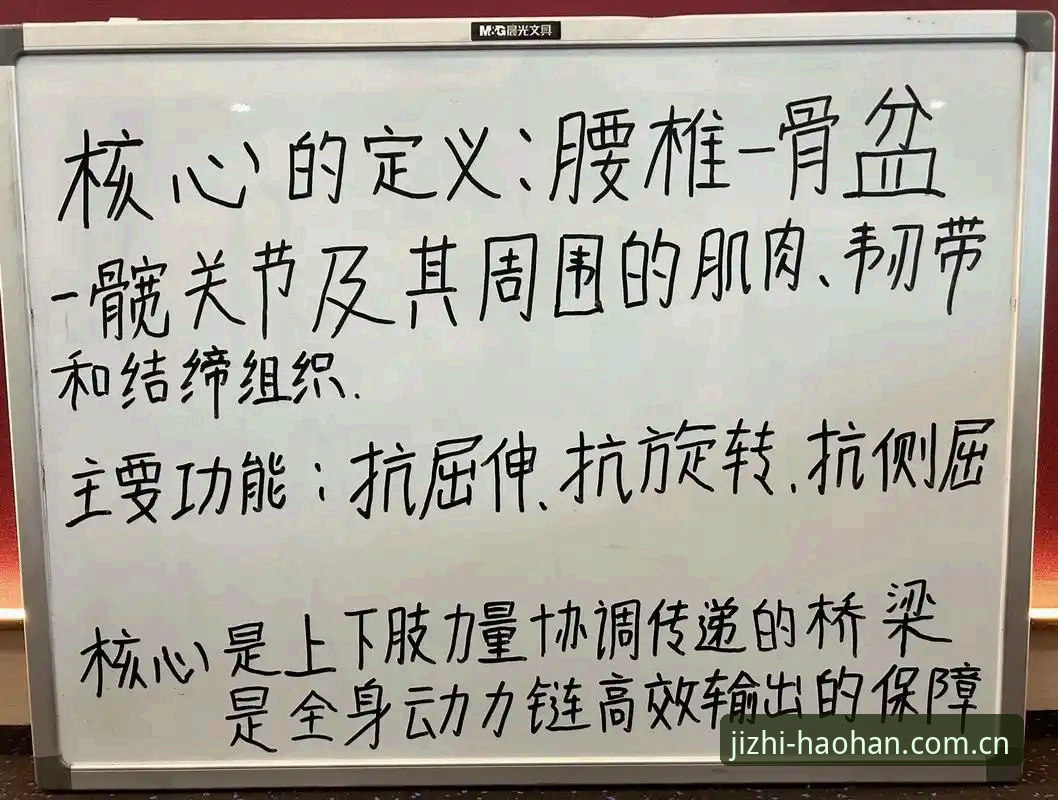 M&G晨光文具
核心的定义:腰椎-骨盆
-髋关节及其周围的肌肉、韧带
和结缔组织.
主要功能:抗屈伸、抗旋转、抗侧屈
核心是上下肢力量协调传递的桥梁
是全身动力链高效输出的保障
jizhi-haohan.com.cn